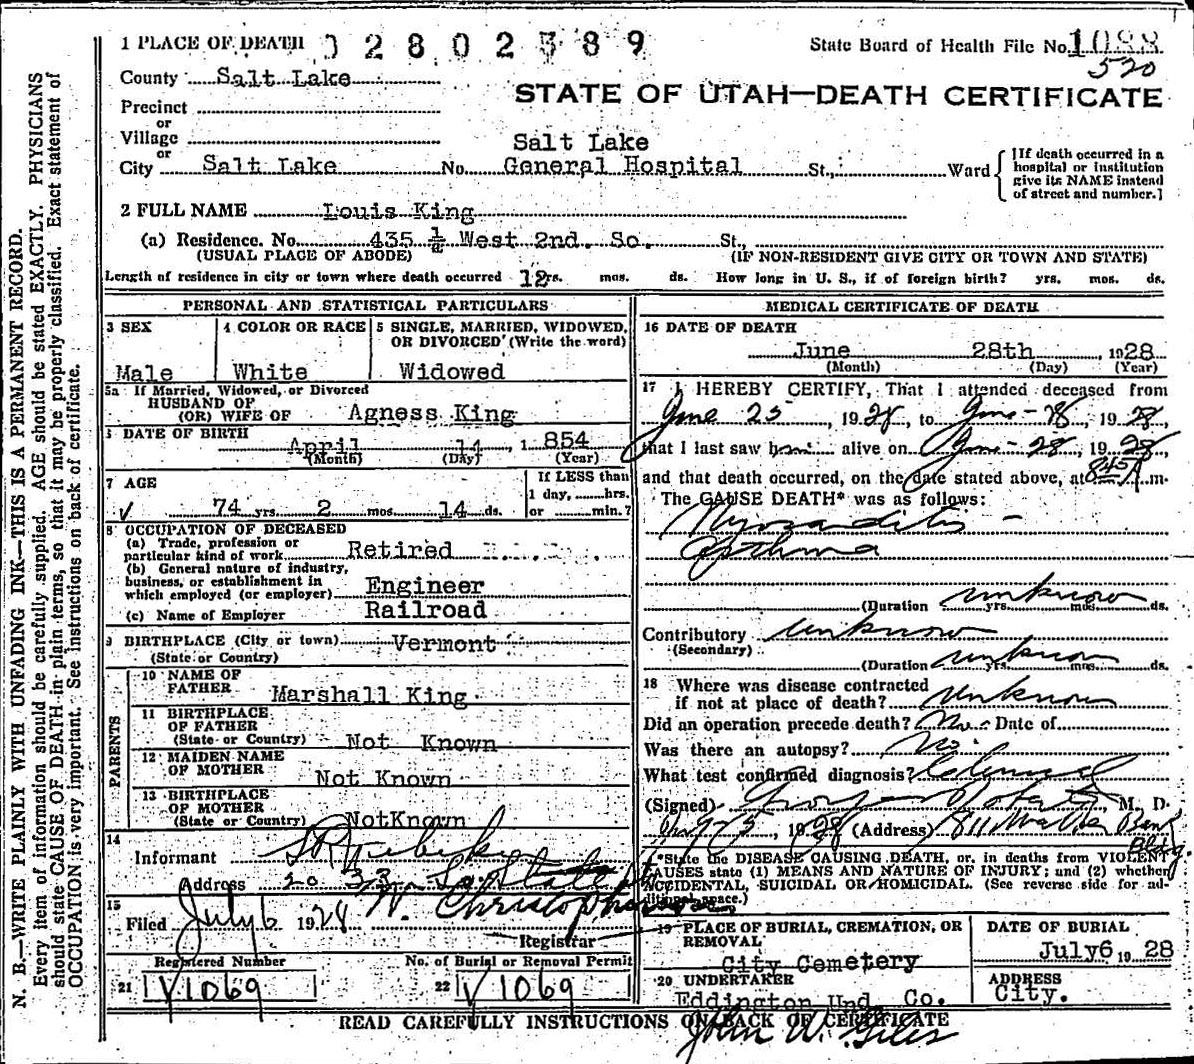 1 PLACE OF DEATH
State Board of Health File No. 1088
520
County Salt Lake
STATE OF UTAH—DEATH CERTIFICATE
Precinct
or
Village
or
City Salt Lake No. Salt Lake General Hospital St., Ward
[If death occurred in a hospital or institution give its NAME instead of street and number.]
2 FULL NAME Louis King
(a) Residence. No. 435 ½ West 2nd. So. St.,
(USUAL PLACE OF ABODE) (IF NON-RESIDENT GIVE CITY OR TOWN AND STATE)
Length of residence in city or town where death occurred 12 yrs. mos. ds. How long in U. S., if of foreign birth? yrs. mos. ds.
PERSONAL AND STATISTICAL PARTICULARS
3 SEX
Male
4 COLOR OR RACE
White
5 SINGLE, MARRIED, WIDOWED,
OR DIVORCED (Write the word)
Widowed
5a If Married, Widowed, or Divorced
HUSBAND OF
(OR) WIFE OF Agness King
6 DATE OF BIRTH
April 14, 1854
(Month) (Day) (Year)
7 AGE
74 yrs. 2 mos. 14 ds.
If LESS than
1 day, hrs.
or min.?
8 OCCUPATION OF DECEASED
(a) Trade, profession or
particular kind of work Retired
(b) General nature of industry,
business, or establishment in
which employed (or employer) Engineer
(c) Name of Employer Railroad
9 BIRTHPLACE (City or town) Vermont
(State or Country)
PARENTS
10 NAME OF
FATHER Marshall King
11 BIRTHPLACE
OF FATHER
(State or Country) Not Known
12 MAIDEN NAME
OF MOTHER Not Known
13 BIRTHPLACE
OF MOTHER
(State or Country) NotKnown
14
Informant
Address 2033 So. State
15
Filed July 6 1928
Registrar
Registered Number
21 1069
No. of Burial or Removal Permit
22 1069
MEDICAL CERTIFICATE OF DEATH
16 DATE OF DEATH
June 28th, 1928
(Month) (Day) (Year)
17 I HEREBY CERTIFY, That I attended deceased from
June 25, 1928, to June-28, 1928,
that I last saw him alive on June-28, 1928
and that death occurred, on the date stated above, at 845 A m.
The CAUSE DEATH* was as follows:
Myocarditis -
Asthma
(Duration unknown yrs. mos. ds.
Contributory unknown
(Secondary)
(Duration unknown yrs. mos. ds.
18 Where was disease contracted
if not at place of death? unknown
Did an operation precede death? No Date of
Was there an autopsy? No.
What test confirmed diagnosis? Clinical
(Signed) M. D.
5, 1928 (Address) 811 Walker Bank Bldg.
*State the DISEASE CAUSING DEATH, or, in deaths from VIOLENT
CAUSES state (1) MEANS AND NATURE OF INJURY; and (2) whether
ACCIDENTAL, SUICIDAL OR HOMICIDAL. (See reverse side for ad-
ditional space.)
19 PLACE OF BURIAL, CREMATION, OR
REMOVAL
City Cemetery
DATE OF BURIAL
July6 1928
20 UNDERTAKER
Eddington Und. Co.
ADDRESS
City.
John W. Giles
READ CAREFULLY INSTRUCTIONS ON BACK OF CERTIFICATE
N. B.—WRITE PLAINLY WITH UNFADING INK—THIS IS A PERMANENT RECORD.
Every item of information should be carefully supplied. AGE should be stated EXACTLY. PHYSICIANS
should state CAUSE OF DEATH in plain terms, so that it may be properly classified. Exact statement of
OCCUPATION is very important. See instructions on back of certificate.